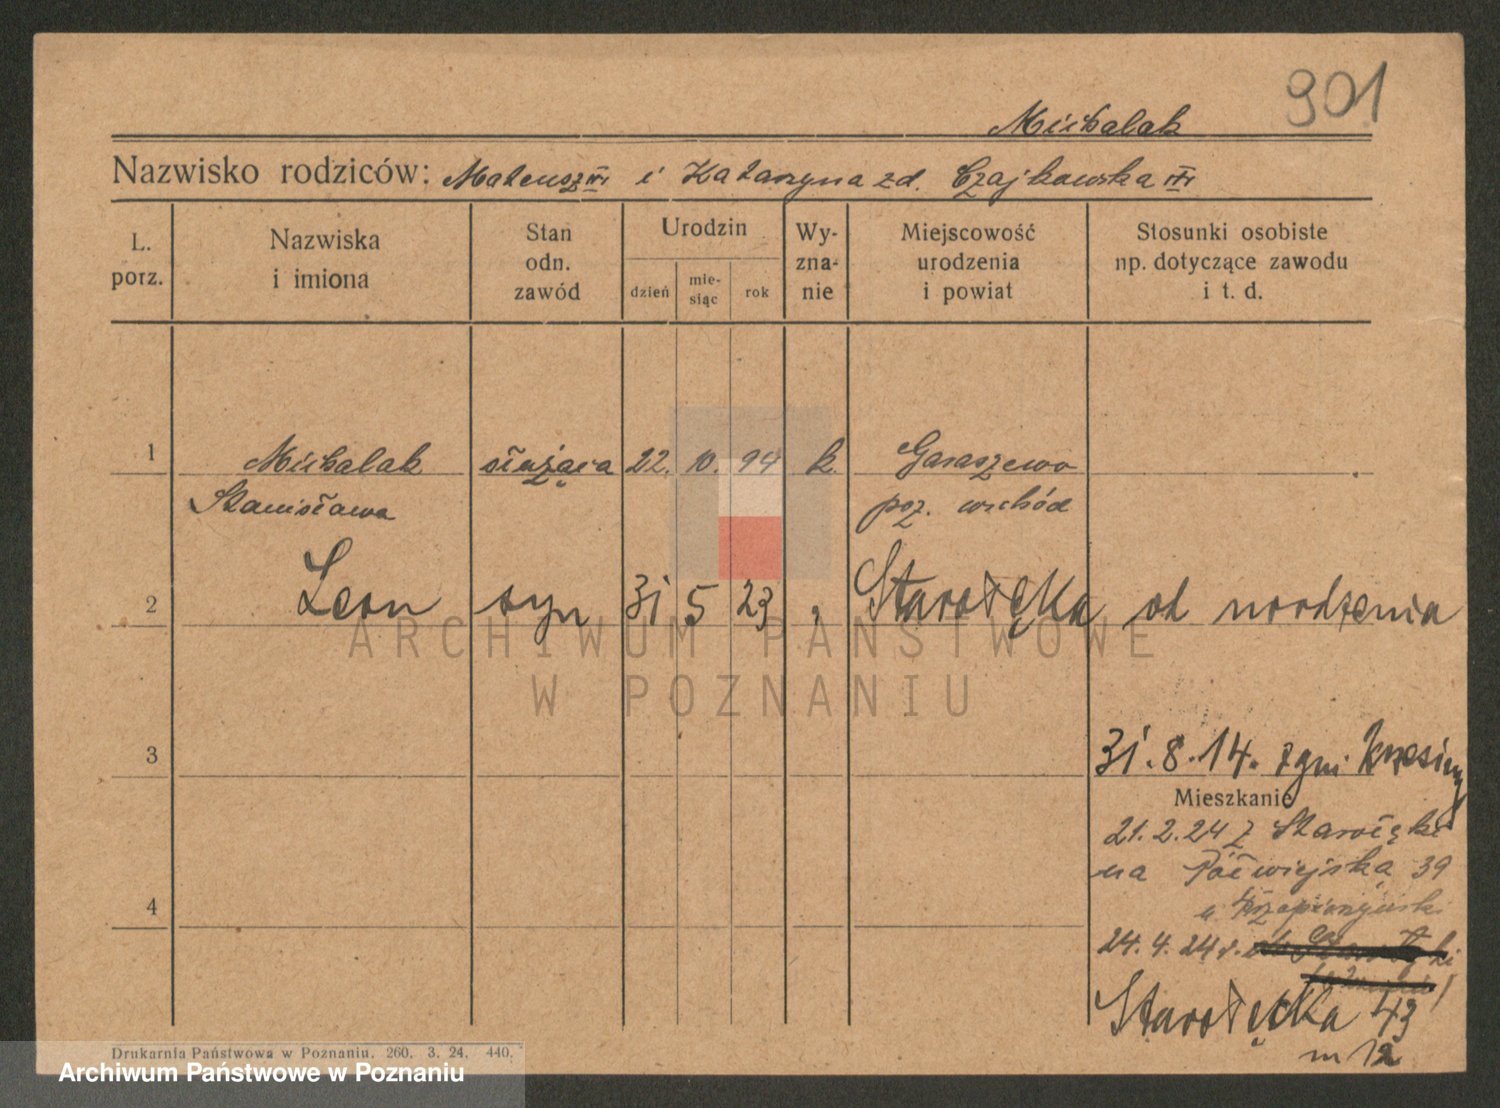 901
Michalak
Nazwisko rodziców: Mateusz i Katarzyna zd. Czajkowska
L. porz.
Nazwiska i imiona
Stan odn. zawód
Urodzin
dzień
mie-siąc
rok
Wy-zna-nie
Miejscowość urodzenia i powiat
Stosunki osobiste np. dotyczące zawodu i t. d.
1 Michalak służąca 22. 10. 94 k. Garaszewo
Stanisława poz. wschód
2 Leon syn 31 5 23 " Starołęka od urodzenia
3 31. 8. 14. z gm. Krzesiny
Mieszkanie
21. 2. 24 z Starołęki
na Półwiejską 39
u
4
24. 4. 24 r.
Starołęcka 43
m 12
ARCHIWUM PAŃSTWOWE
W POZNANIU
Drukarnia Państwowa w Poznaniu. 260. 3. 24. 440.
Archiwum Państwowe w Poznaniu